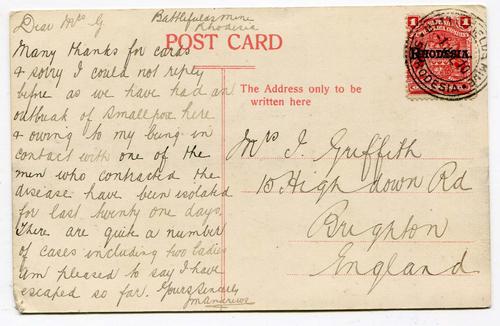 Dear Mrs G
Battlefields Mine
Rhodesia
POST CARD
Many thanks for cards
& sorry I could not reply
before as we have had an
outbreak of Smallpox here
& owing to my being in
contact with one of the
men who contracted the
disease have been isolated
for last twenty one days.
There are quite a number
of cases including two ladies
am pleased to say I have
escaped so far. Yours Sincerely
The Address only to be
written here
1 1
RHODESIA.
RHODESIA
Mrs J. Griffith
15 High down Rd
Brighton
England